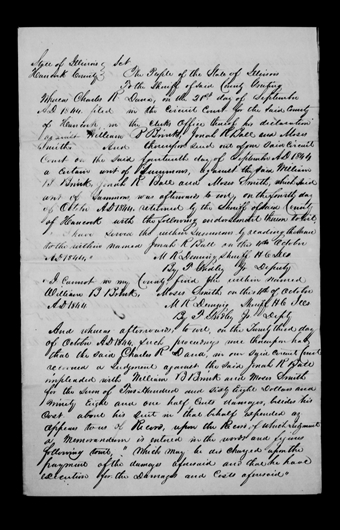 State of Illinois } Sct
Hancock County }
The People of the State of Illinois
To the Sheriff of said County Greeting
Whereas Charles R. Dana, on the 21st day of September
A.D. 1844, filed in the Circuit Court in the said County
of Hancock in the Clerks Office thereof his declaration
against William B Brink, Jonah R. Ball and Moses
Smith. And thereupon sued out of our said Circuit
Court on the said day of September A.D. 1844
a certain writ of Summons, against the said William
B. Brink, Jonah R. Ball and Moses Smith, which said
writ of Summons was afterwards to wit, on the fourth day
of October A.D. 1844, returned by the Sheriff of said County
of Hancock with the following endorsement thereon to wit:
I have served the within Summons by reading the same
to the within named Jonah R. Ball on the October
A.D. 1844. M R Deming Sheriff H. C. Ills
By Deputy
I cannot in my County find the within named
William B Brink, Moses Smith on the 4th of October
A.D. 1844 M R Deming Sheriff H C Ills
By Depty
And whereas afterwards, to wit, on the Twenty third day
of October A.D. 1844, Such proceedings were thereupon had
that the said Charles R Dana, in our said Circuit Court
recovered a Judgment against the said Jonah R Ball
impleaded with William B Brink and Moses Smith
for the Sum of One Hundred and sixty Eight Dollars and
Ninety Eight and one half Cents damages, besides his
Cost about his suit in that behalf expended as
appears to us of Record, upon the Record of which Judgment
a Memorandum is entered in the words and figures
following to wit, "Which may be discharged upon the
payment of the damages aforesaid and that he have
execution for the Damages and Costs aforesaid"